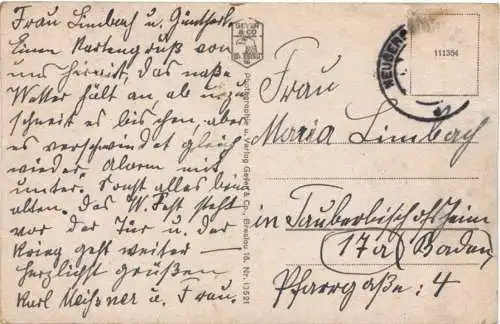 Frau Limbach u. Günther
Einen Kartengruß von
uns hier mit, das naße
Wetter hält an, ab u. zu
schneit es bischen, aber
es verschwindet gleich
wieder. Alarm mit
unter. Sonst alles bein
alten. Das W. Fest steht
vor der Tür u. der
Krieg geht weiter –
herzlichst grüßen
Karl Meißner u. Frau.
GEYER
& CO
BRESLAU
Photographie u. Verlag Geyer & Co., Breslau 16. Nr. 13521
111354
Frau
Maria Limbach
in Tauberbischofsheim
17a (Baden)
Pfarrgaße: 4